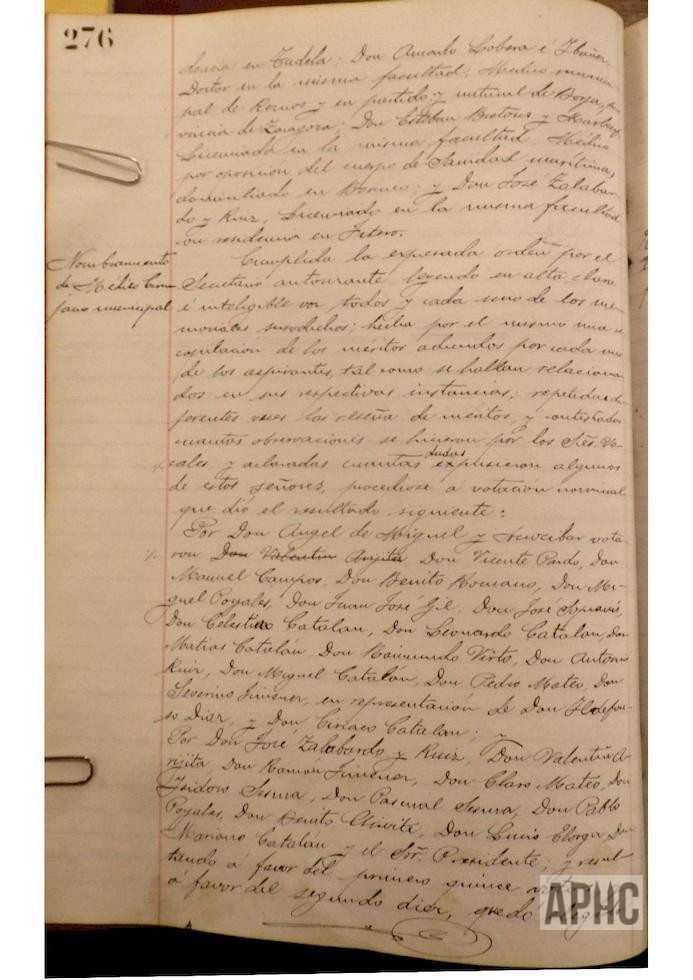 276
dencia en Tudela; Don Amado Lobera é Ibañez,
Doctor en la misma facultad, Medico munici-
pal de Romos y su partido y natural de Borja, pro
vincia de Zaragoza; Don Esteban
Licenciado en la misma facultad, Médico
por oposicion del cuerpo de Sanidad marítima,
domiciliado en y Don José Zalabar-
do y Ruiz, Licenciado en la misma facultad
con residencia en Fitero.
Nombramiento
de Médico Ciru-
jano municipal
Cumplida la expresada orden por el
Secretario autorizante, leyendo en alta, clara
é inteligible voz todos y cada uno de los me-
moriales susodichos; hecha por el mismo una re
copilación de los méritos aducidos por cada uno
de los aspirantes, tal como se hallan relaciona
dos en sus respectivas instancias; repetidas di
ferentes veces las reseña de méritos, y contestadas
cuantas observaciones se hicieron por los Sres. Vo-
cales y aclaradas cuantas dudas expusieron algunos
de estos señores, procediose á votación nominal
que dió el resultado siguiente:
Por Don Angel de Miguel y vota
ron Don Valentin Arijita Don Vicente Pardo, Don
Manuel Campos, Don Benito Romano, Don Mi-
guel Poyales, Don Juan José Gil, Don José
Don Celestino Catalan, Don Leonardo Catalan, Don
Matias Catalán, Don Raimundo Virto, Don Antonio
Ruiz, Don Miguel Catalán, Don Pedro Mateo, Don
Severino Jimenez, en representación de Don Ildefon-
so Diaz, y Don Ciriaco Catalan; y
Por Don José Zalabardo y Ruiz, Don Valentin A-
rijita, Don Ramón Jimenez, Don Claro Mateo, Don
Isidoro Sesma, Don Pascual Sesma, Don Pablo
Poyales, Don Benito Chivite, Don Lucio Elorza, Don
Mariano Catalán y el Sr. Presidente; y resul-
tando á favor del primero quince votos y
á favor del segundo diez, quedó
APHC